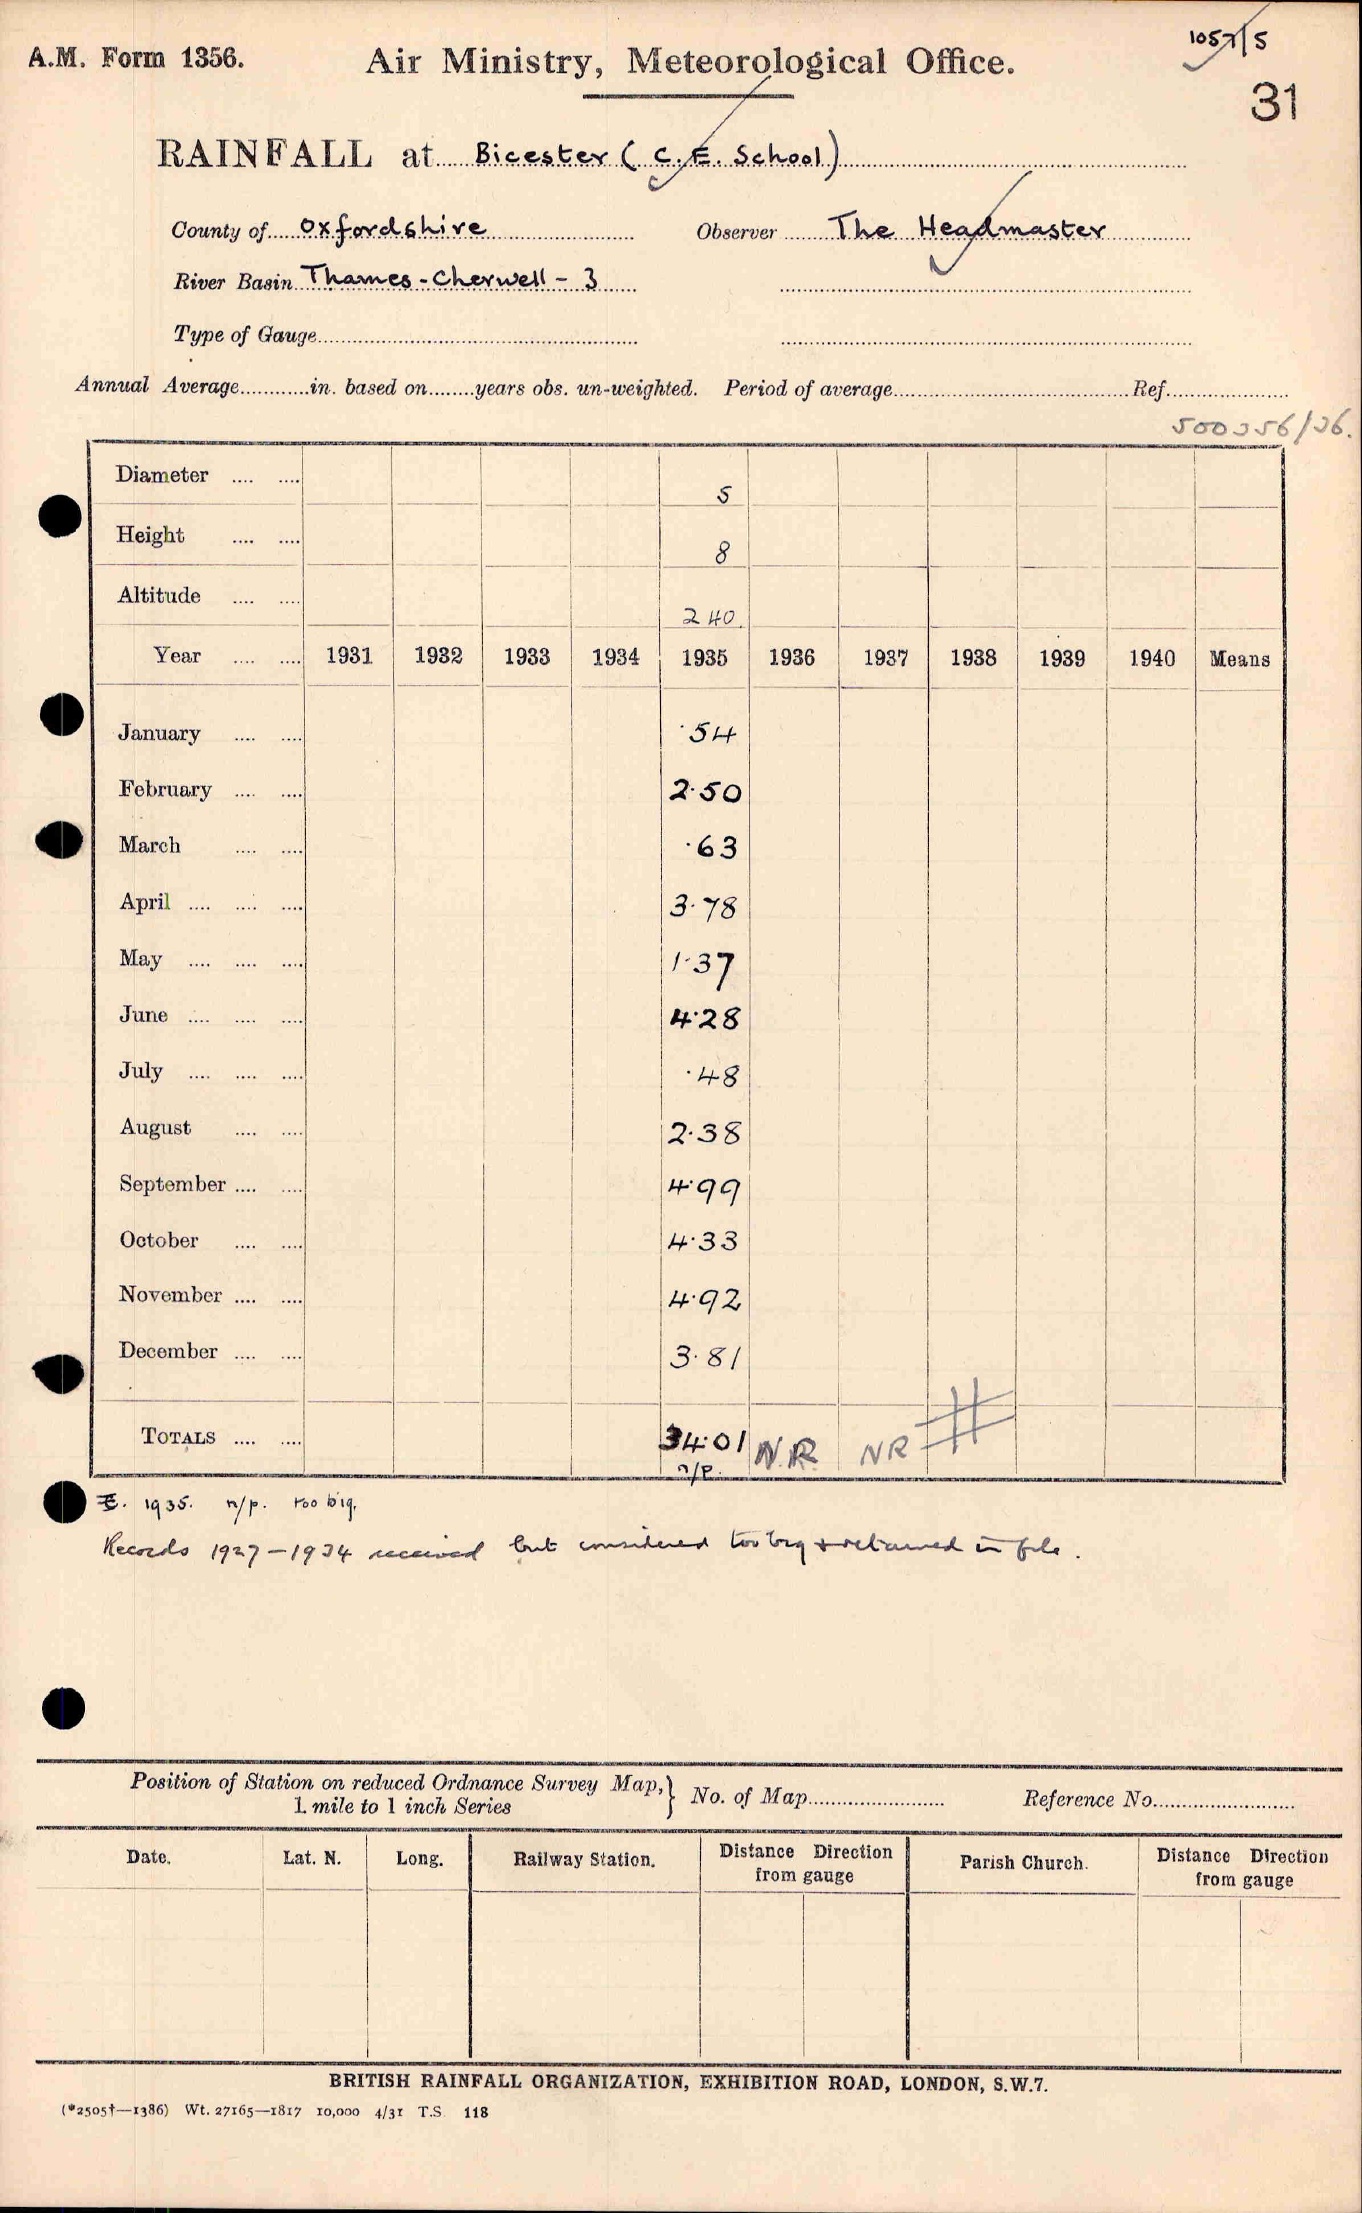 1057/5
A.M. Form 1356. Air Ministry, Meteorological Office.
31
RAINFALL at Bicester (C.E. School)
County of Oxfordshire Observer The Headmaster
River Basin Thames-Cherwell-3
Type of Gauge
Annual Average in. based on years obs. un-weighted. Period of average Ref.
500356/36.
Diameter 5
Height 8
Altitude 240
Year 1931 1932 1933 1934 1935 1936 1937 1938 1939 1940 Means
January ·54
February 2·50
March ·63
April 3·78
May 1·37
June 4·28
July ·48
August 2·38
September 4·99
October 4·33
November 4·92
December 3·81
TOTALS 34·01 N.R. NR #
n/p.
E. 1935. n/p. too big.
Records 1927-1934 received but considered too big & retained in file.
Position of Station on reduced Ordnance Survey Map, } No. of Map Reference No.
1 mile to 1 inch Series
Date. Lat. N. Long. Railway Station. Distance Direction from gauge Parish Church. Distance Direction from gauge
BRITISH RAINFALL ORGANIZATION, EXHIBITION ROAD, LONDON, S.W.7.
(*2505†—1386) Wt. 27165—1817 10,000 4/31 T.S. 118